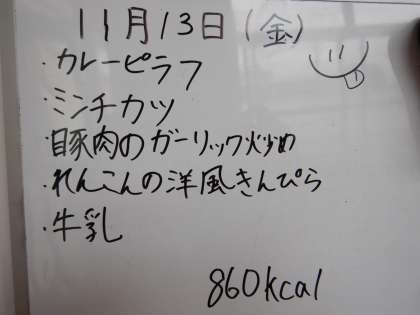 11月13日(金)
・カレーピラフ
・ミンチカツ
・豚肉のガーリック炒め
・れんこんの洋風きんぴら
・牛乳
860kcal